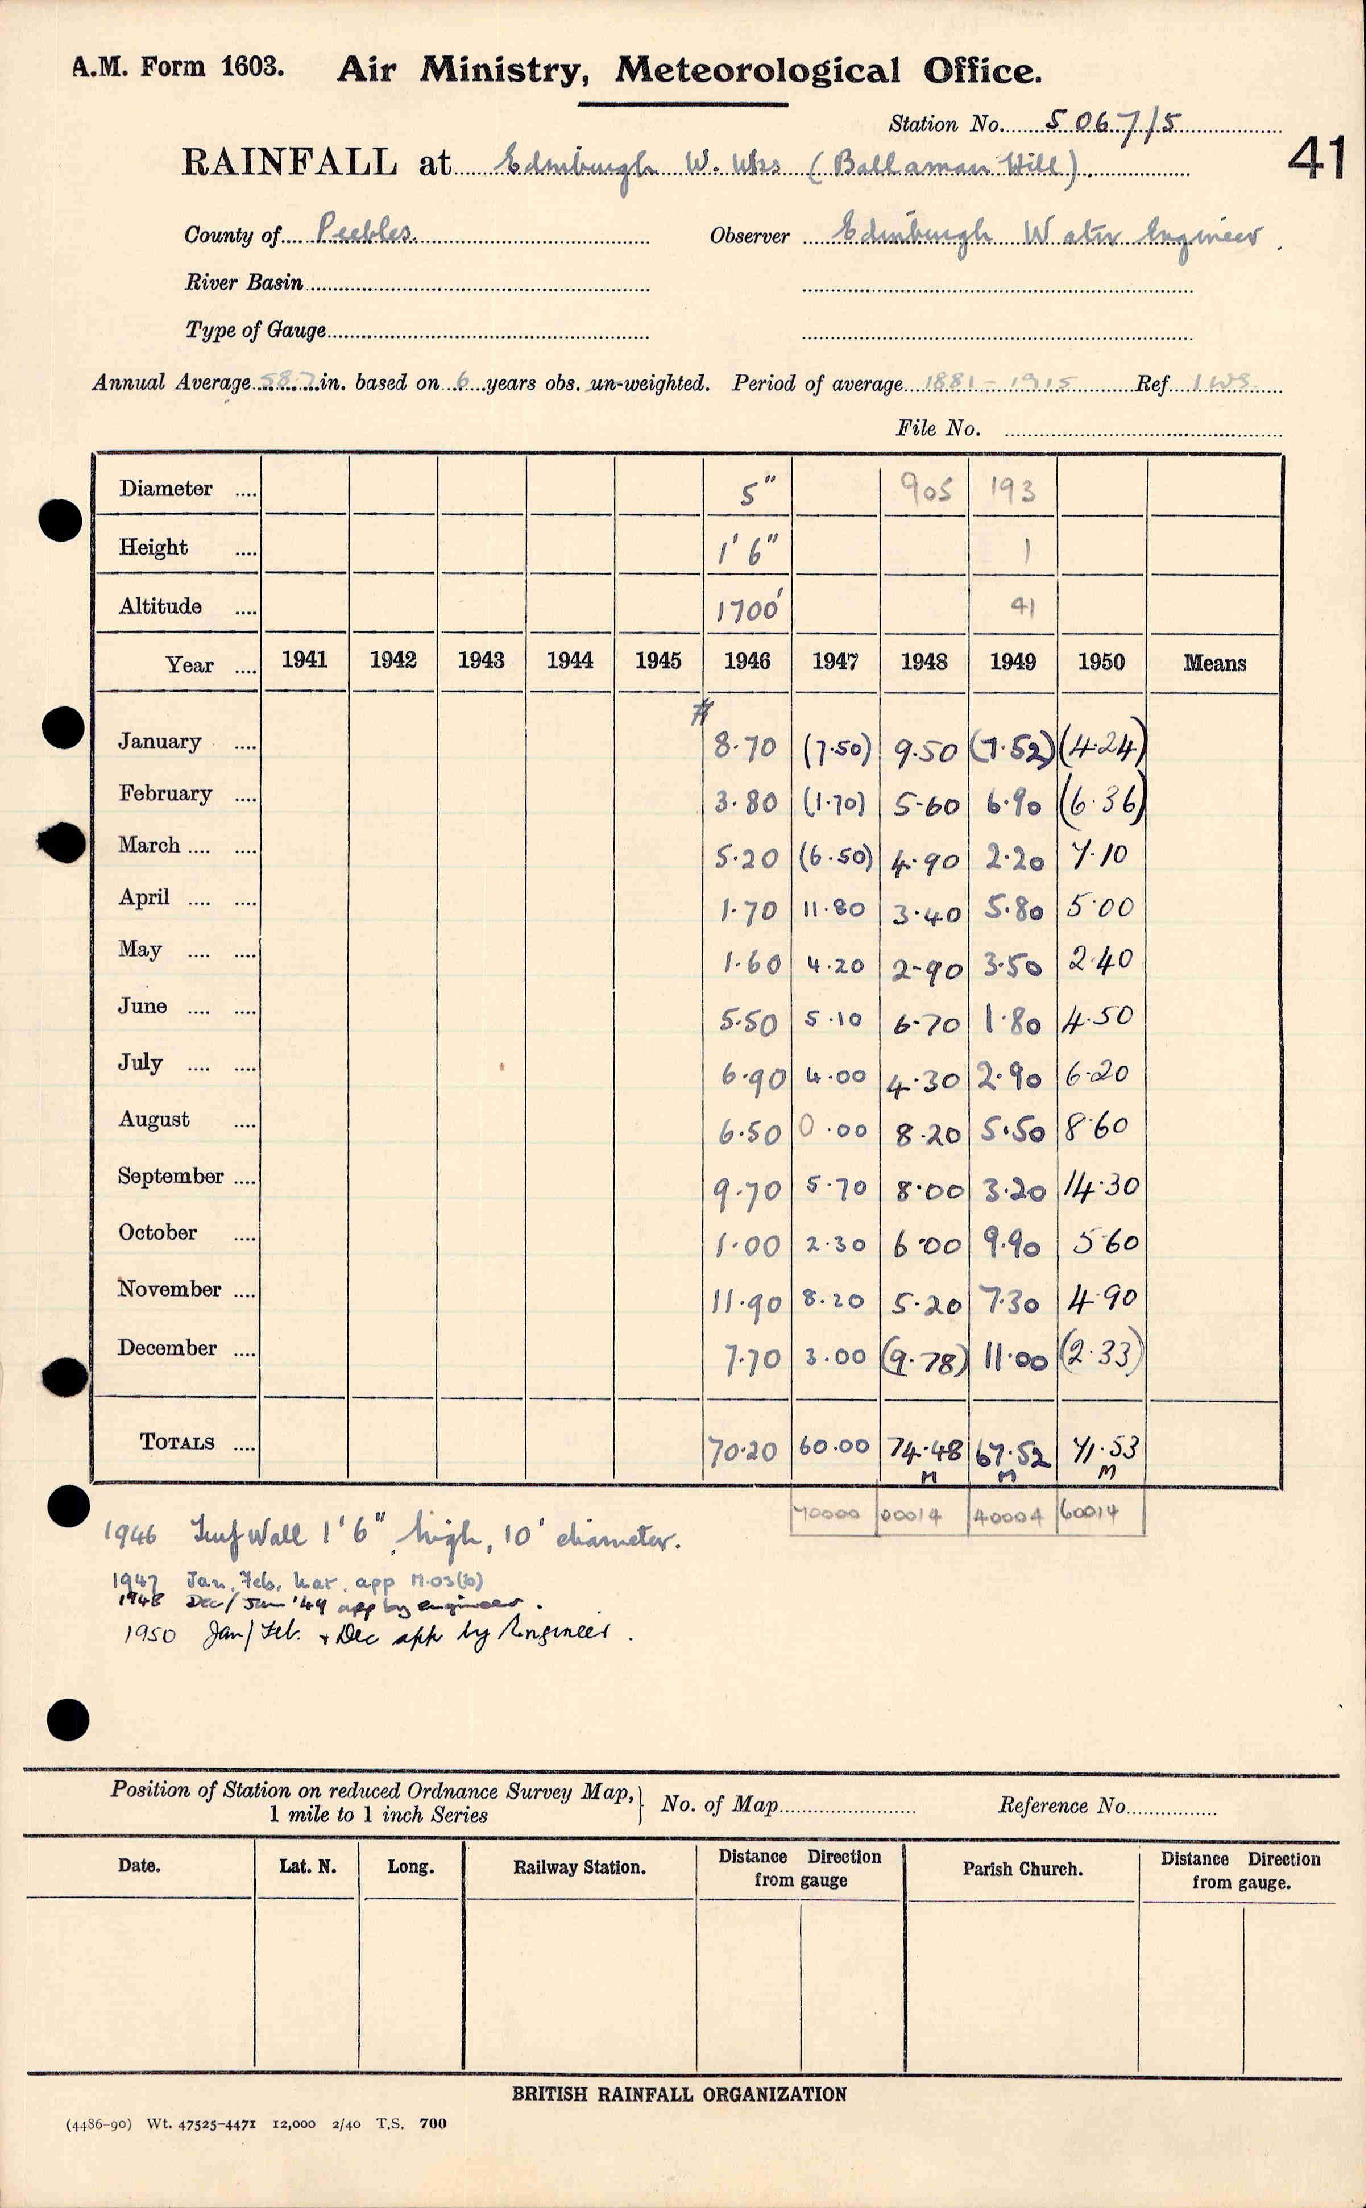 A.M. Form 1603. Air Ministry, Meteorological Office.
Station No. 5067/5
41
RAINFALL at Edinburgh W. Wks (Ballaman Hill).
County of Peebles. Observer Edinburgh Water Engineer.
River Basin
Type of Gauge
Annual Average 58.7 in. based on 6 years obs. un-weighted. Period of average 1881 - 1915 Ref
File No.
Diameter .... 5" 905 193
Height .... 1' 6" 1
Altitude .... 1700' 41
Year .... 1941 1942 1943 1944 1945 1946 1947 1948 1949 1950 Means
#
January .... 8.70 (7.50) 9.50 (7.52) (4.24)
February .... 3.80 (1.70) 5.60 6.90 (6.36)
March .... .... 5.20 (6.50) 4.90 2.20 7.10
April .... .... 1.70 11.80 3.40 5.80 5.00
May .... .... 1.60 4.20 2.90 3.50 2.40
June .... .... 5.50 5.10 6.70 1.80 4.50
July .... .... 6.90 4.00 4.30 2.90 6.20
August .... 6.50 0.00 8.20 5.50 8.60
September .... 9.70 5.70 8.00 3.20 14.30
October .... 1.00 2.30 6.00 9.90 5.60
November .... 11.90 8.20 5.20 7.30 4.90
December .... 7.70 3.00 (9.78) 11.00 (2.33)
TOTALS .... 70.20 60.00 74.48 67.52 71.53
M M M
70000 00014 40004 60014
1946 Turf Wall 1' 6" high, 10' diameter.
1947 Jan, Feb, Mar. app
1948 Dec/ Jan '49 app by engineer.
1950 Jan/Feb. + Dec app by Engineer.
Position of Station on reduced Ordnance Survey Map, } No. of Map Reference No.
1 mile to 1 inch Series
Date. Lat. N. Long. Railway Station. Distance Direction from gauge Parish Church. Distance Direction from gauge.
BRITISH RAINFALL ORGANIZATION
(4486-90) Wt. 47525-4471 12,000 2/40 T.S. 700